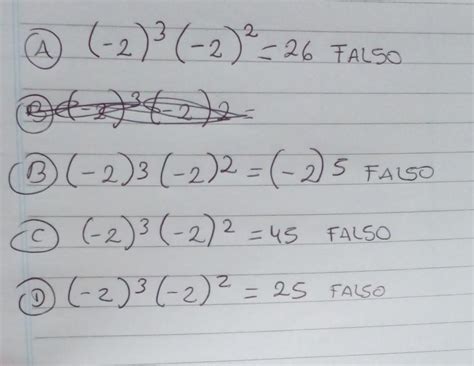 A (-2)³ (-2)² = 26 FALSO
B (-2)³ (-2) 2 =
B (-2)3 (-2)2 = (-2)5 FALSO
C (-2)³ (-2)² = 45 FALSO
D (-2)³ (-2)² = 25 FALSO